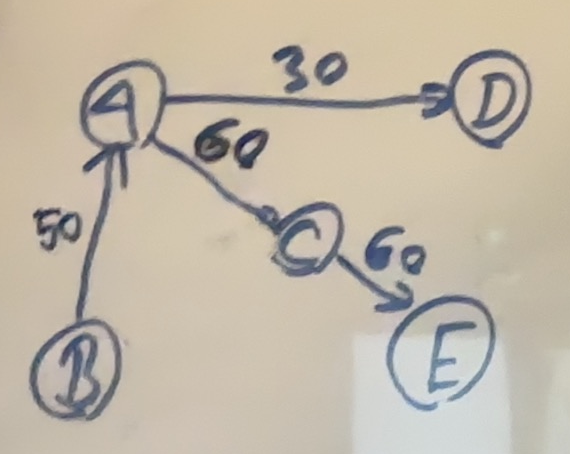 30
A
D
60
50
C
60
B
E